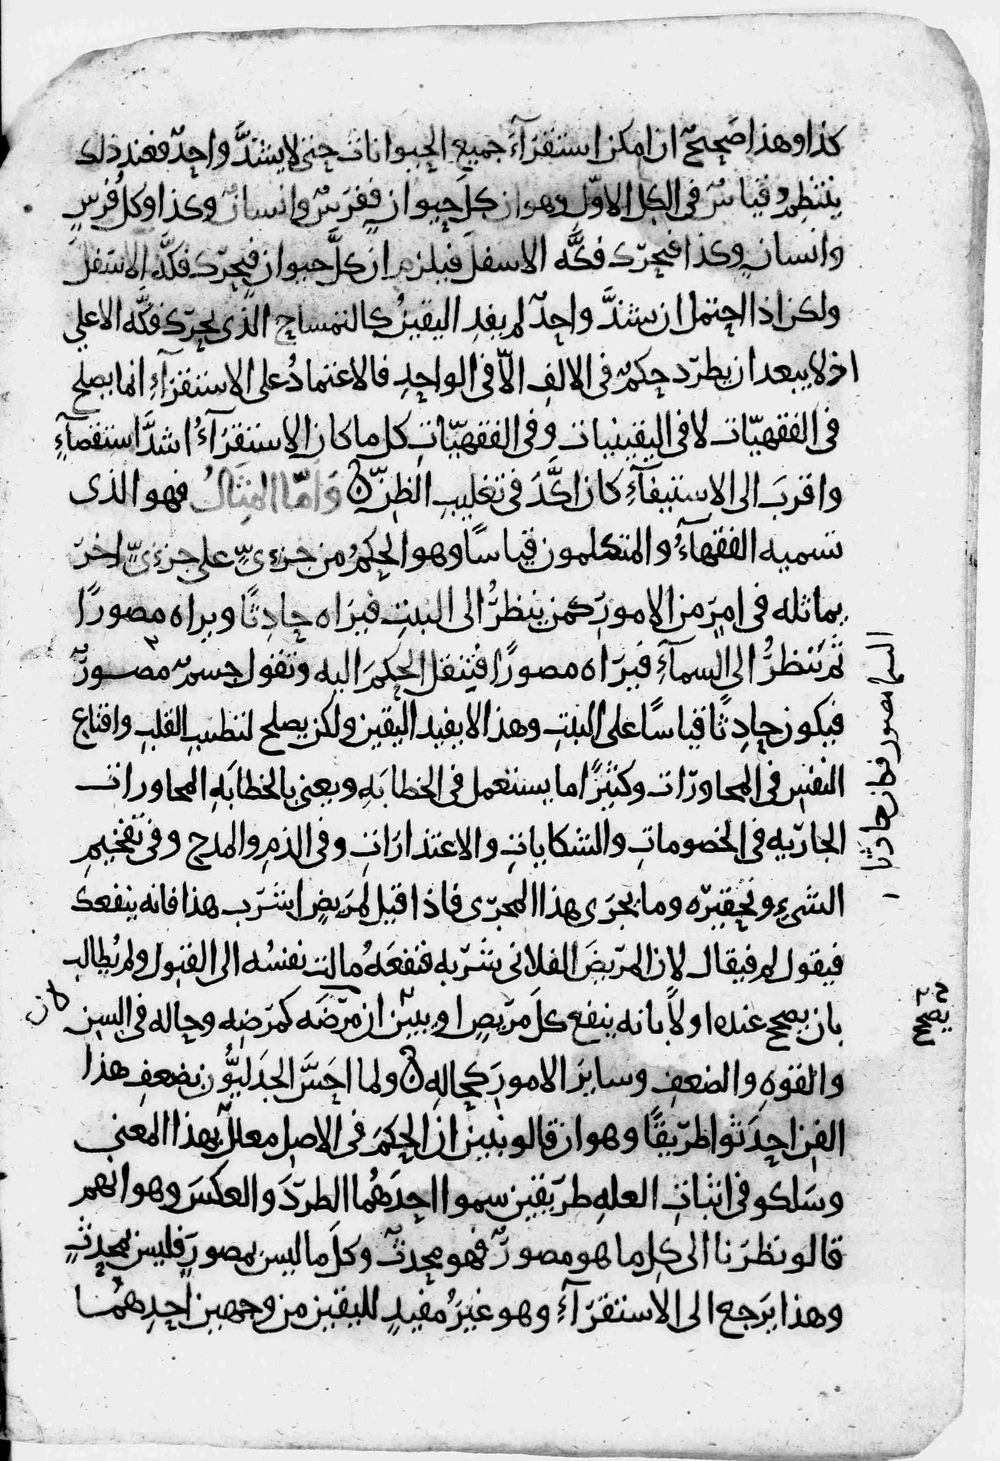 كذا وهذا صَحيحٌ ان امكن استقرَآءَ جميع الحيوانات حتى لا يشذَّ واحدٌ فعند ذلك
ينتظمُ قياسٌ فى الكل الاوّل وهو ان كلَ حيوانٍ ففرَسٌ وانسانٌ وكذا وكل فرسٍ
وانسانٍ وكذا فيحرّك فكّه الاسفلَ فيلزم ان كلَّ حيوانٍ فيحرّك فكَّه الاسفلَ
ولكن اذا احتمل ان يشذَّ واحدٌ لم يفدِ اليقينُ كالتمساح الذى يحرّك فكَّه الاعلي
اذ لا يبعد ان يطرّد حكمٌ فى الالفِ الّا فى الواحدِ فالاعتمادُ على الاستقرَآءِ انما يصلح
فى الفقهيّات لا فى اليقينيات وفى الفقهيّاتِ كل ما كان الاستقرَآءُ اشدَّ استقصآءٍ
واقربَ الى الاستيفآءِ كان اكَّدَ فى تغليبِ الظنِّ ۞ وَامّا المِثَالُ فهو الذى
تسميه الفقهآءُ والمتكلمون قياسًا وهو الحكمُ من جزءىٍّ على جزءىٍّ اخرَ
يماثله فى امرٍ من الامورِ كمن ينظرُ الى البيتِ فيرَاه حادِثًا ويراه مصورًا
ثم يَنظرُ الى السمآءِ فيرَاه مصورًا فيَنقل الحكمَ اليه وتقول جسمٌ مصورٌ
فيكون حادِثًا قياسًا على البيتِ وهذا لا يفيد اليقين ولكن يصلح لتطييب القلبِ واقناع
النفسِ فى المحاورَات وكثيرًا ما يستعمل فى الخطابَه ويعنى بالخطابَهِ المحاورات
الجاريه فى الخصوماتِ والشكاياتِ والاعتذارَاتِ وفى الذمِ والمدح وفى تفخيم
الشىءِ وتحقيرَه وما يجرَى هذا المجرَى فاذا قيل لمرَيضٍ اشرَب هذا فانه ينفعك
فيقول لم فيقال لان المرَيضَ الفلانى شرَبه فنفعَهُ مالت نفسُه الى القبول ولم يُطالب
بان يصحح عنده اولًا بانه ينفع كلَ مرَيضٍ او يبيّن ان مرَضَه كمرَضِه وحاله فى السن
والقوهِ والضعفِ وسايرَ الامورِ كحالهِ ۞ ولما احَسَّ الجدَليُّون بضعفِ هذا
الفن احدَثوا طرَيقًا وهو ان قالو نبين ان الحكمَ فى الاصلِ معللٌ بهذا المعنى
وسَلكو فى اثباتِ العلهِ طرَيقين سموا احدَهُما الطرَدَ والعكسَ وهو انهم
قالو نظرَنا الى كل ما هو مصورٌ فهو محدثٌ وكلَ ما ليس بمصورٍ فليس بمحدثٍ
وهذا يرَجع الى الاستقرَآءِ وهو غيرُ مفيدٍ لليقين من وجهين احدِهُما
السما مصور فكان حادثا
يصحح
لان